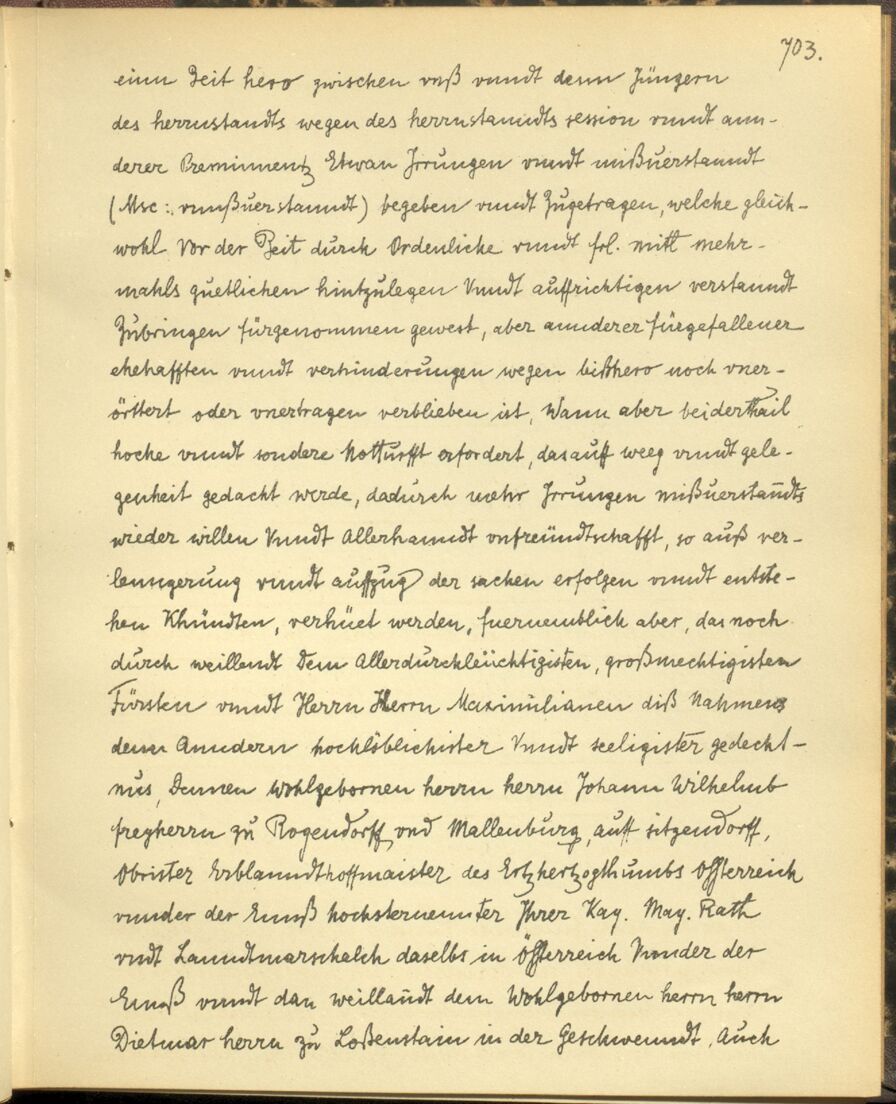 703.
einn Zeit hero zwischen vnß vnndt denn Jüngern
des herrnstandts wegen des herrnstanndts session vnndt ann-
derer Preminnentz Etwan Jrrungen vnndt mißuerstanndt
(Msc: vnnßuerstanndt) begeben vnndt Zugetragen, welche gleich-
wohl Vor der Zeit durch Ordenliche vnndt frl. mitt mehr-
mahls guetlichen hintzulegen Vnndt auffrichtigen verstanndt
Zubringen fürgenommen gewest, aber annderer fürgefallener
ehehafften vnndt verhinderungen wegen bißhero noch vner-
örttert oder vnertragen verblieben ist, Wann aber beiderthail
hoche vnndt sondere Notturfft erfordert, das auff weeg vnndt gele-
genheit gedacht werde, dadurch mehr Jrrungen mißuerstandts
wieder willen Vnndt Allerhanndt vnfreündtschafft, so auß ver-
lenngerung vnndt auffzug der sachen erfolgen vnndt entste-
hen Khündten, verhüet werden, fuernemblich aber, das noch
durch weillendt Dem Allerdurchleüchtigisten, großmechtigisten
Fürsten vnndt Herrn Herrn Maximilianen diß Nahmens
denn Anndern hochlöblichister Vnndt seeligister gedecht-
nus, Dennen Wohlgebornen herrn herrn Johann Wilhelmb
freyherrn zu Rogendorff vnd Mallenburg, auff sitzendorff,
Obrister Erblanndthoffmaister des Ertzhertzogthumbs Össterreich
vnnder der Ennß hochsternennter Jhrer Kay. May. Rath
vndt Lanndtmarschalch daselbs in Össterreich Vnnder der
Ennß vnndt dan weillandt dem Wohlgebornen herrn herrn
Dietmar herrn zu Loßenstain in der Geschwenndt, Auch